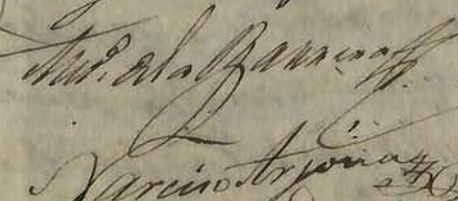 de la Barrera
Narciso Arjona